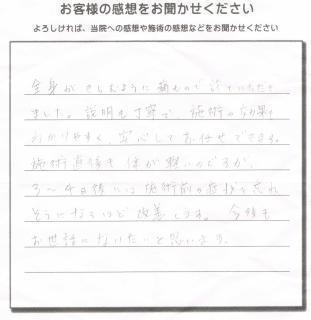 お客様の感想をお聞かせください
よろしければ、当院への感想や施術の感想などをお聞かせください
全身がきしむように痛むので診ていただき
ました。説明も丁寧で、施術の効果も
わかりやすく、安心してお任せできる。
施術直後も体が軽いのだるが、
3～4日後には施術前の症状を忘れ
そうになるほど改善します。今後も
お世話になりたいと思います。